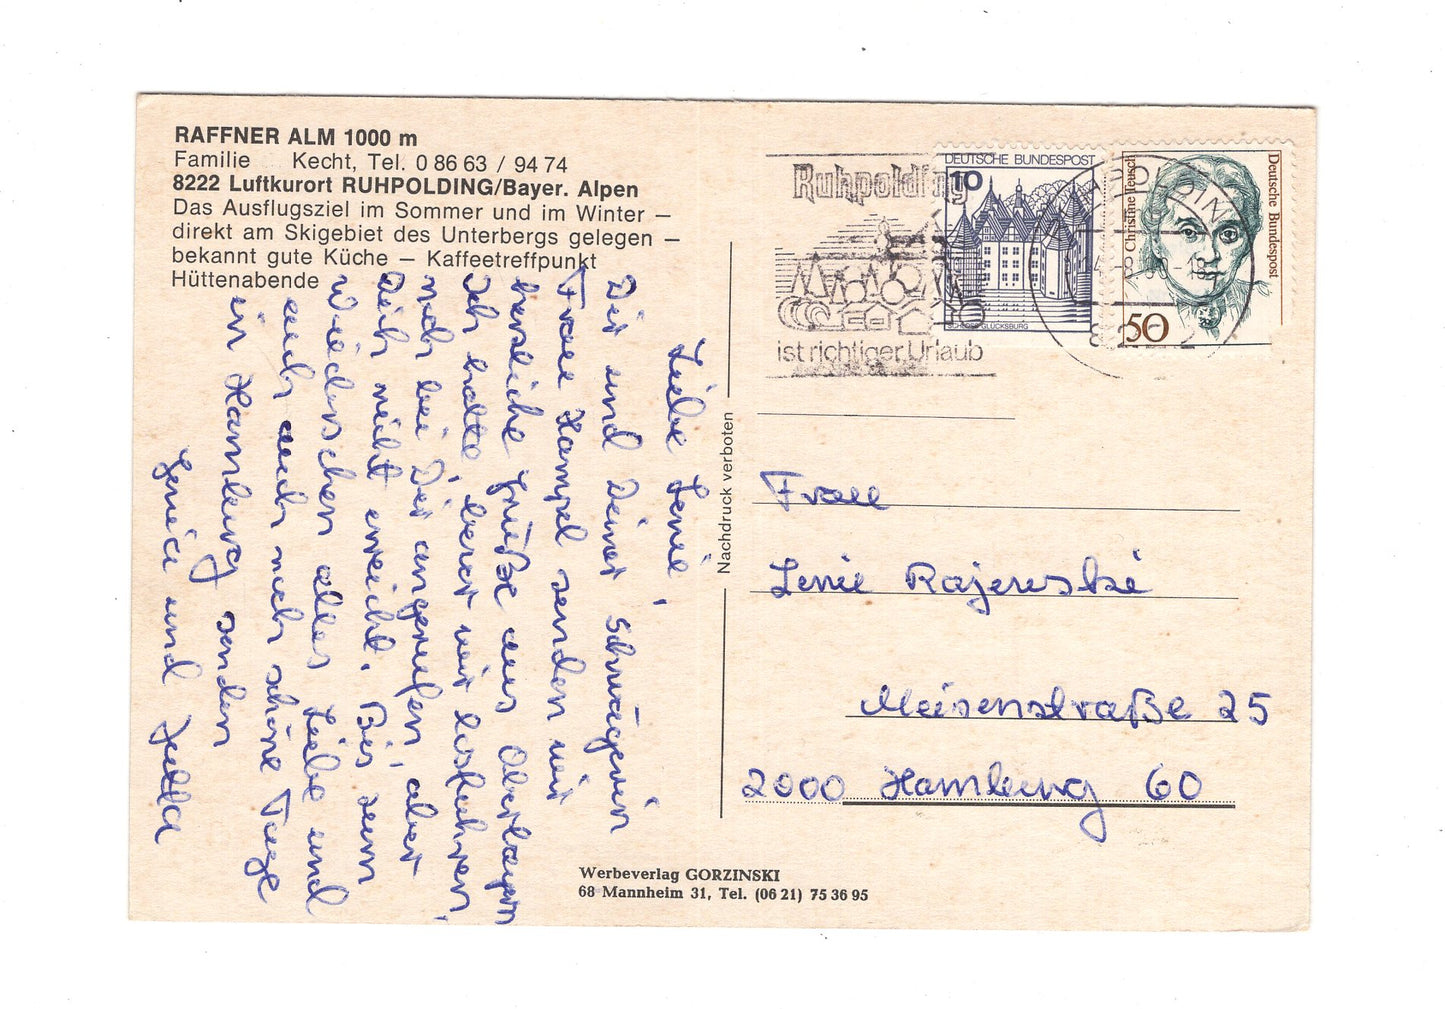 RAFFNER ALM 1000 m
Familie Kecht, Tel. 0 86 63 / 94 74
8222 Luftkurort RUHPOLDING/Bayer. Alpen
Das Ausflugsziel im Sommer und im Winter –
direkt am Skigebiet des Unterbergs gelegen –
bekannt gute Küche – Kaffeetreffpunkt
Hüttenabende
Liebe Lenie,
Dir und Deiner Schwägerin
Frau Hampel senden wir
herzliche Grüße aus Oberbayern
Ich hatte, bevor wir losfuhren,
noch bei Dir angerufen, aber
Dich nicht erreicht. Bis zum
Wiedersehen alles Liebe und
auch euch noch schöne Tage
in Hamburg senden
und Jutta
Nachdruck verboten
Ruhpolding
ist richtiger Urlaub
DEUTSCHE BUNDESPOST
10
SCHLOSS GLÜCKSBURG
Christine Teusch
Deutsche Bundespost
50
Frau
Lenie Rajewski
Meisenstraße 25
2000 Hamburg 60
Werbeverlag GORZINSKI
68 Mannheim 31, Tel. (06 21) 75 36 95